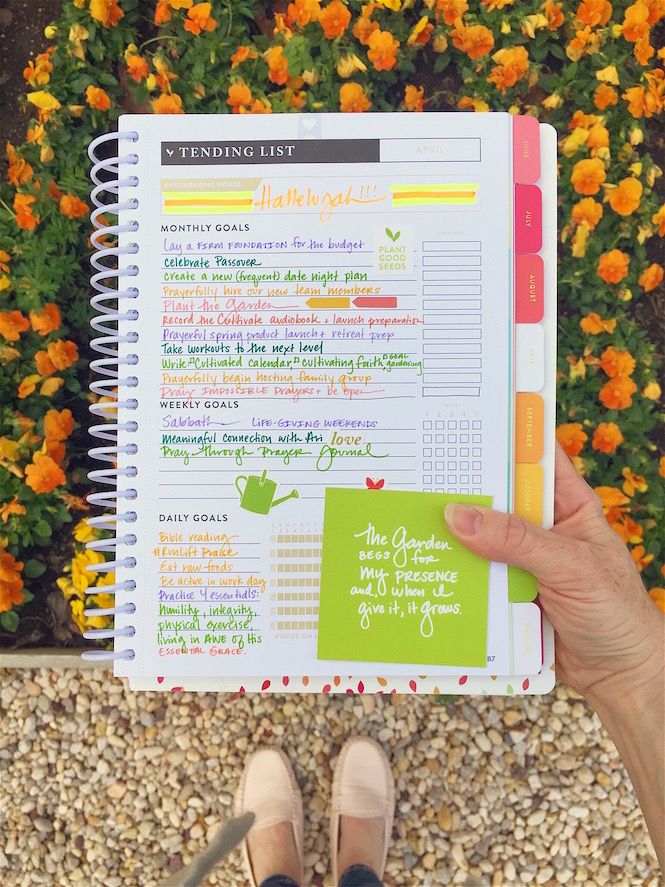 TENDING LIST APRIL
ENCOURAGING WORDS
Hallelujah!!!
MONTHLY GOALS
PROGRESS
Lay a FIRM FOUNDATION for the budget
Celebrate Passover
Create a new (frequent) date night plan
Prayerfully hire our new team members
Plant the Garden
Record the Cultivate audiobook + launch preparation
Prayerful spring product launch + retreat prep
Take workouts to the next level
Write Cultivated calendar, cultivating faith, GOAL gardening
Prayerfully begin hosting family group
Pray IMPOSSIBLE Prayers + be open
PLANT
GOOD
SEEDS
WEEKLY GOALS
WEEK
1 2 3 4 5
Sabbath LIFE-GIVING WEEKENDS
Meaningful connection with Ari love
Pray through Prayer Journal
DAILY GOALS
Bible reading
#RunLift Praise
Eat raw foods
Be active in work day
Practice 4 essentials:
Humility, integrity,
physical exercise,
living in AWE of His
ESSENTIAL GRACE.
FOCUS ON
The Garden
BEGS for
My PRESENCE
and, when I
give it, it grows.
87
JUNE
JULY
AUGUST
SEPTEMBER
OCTOBER